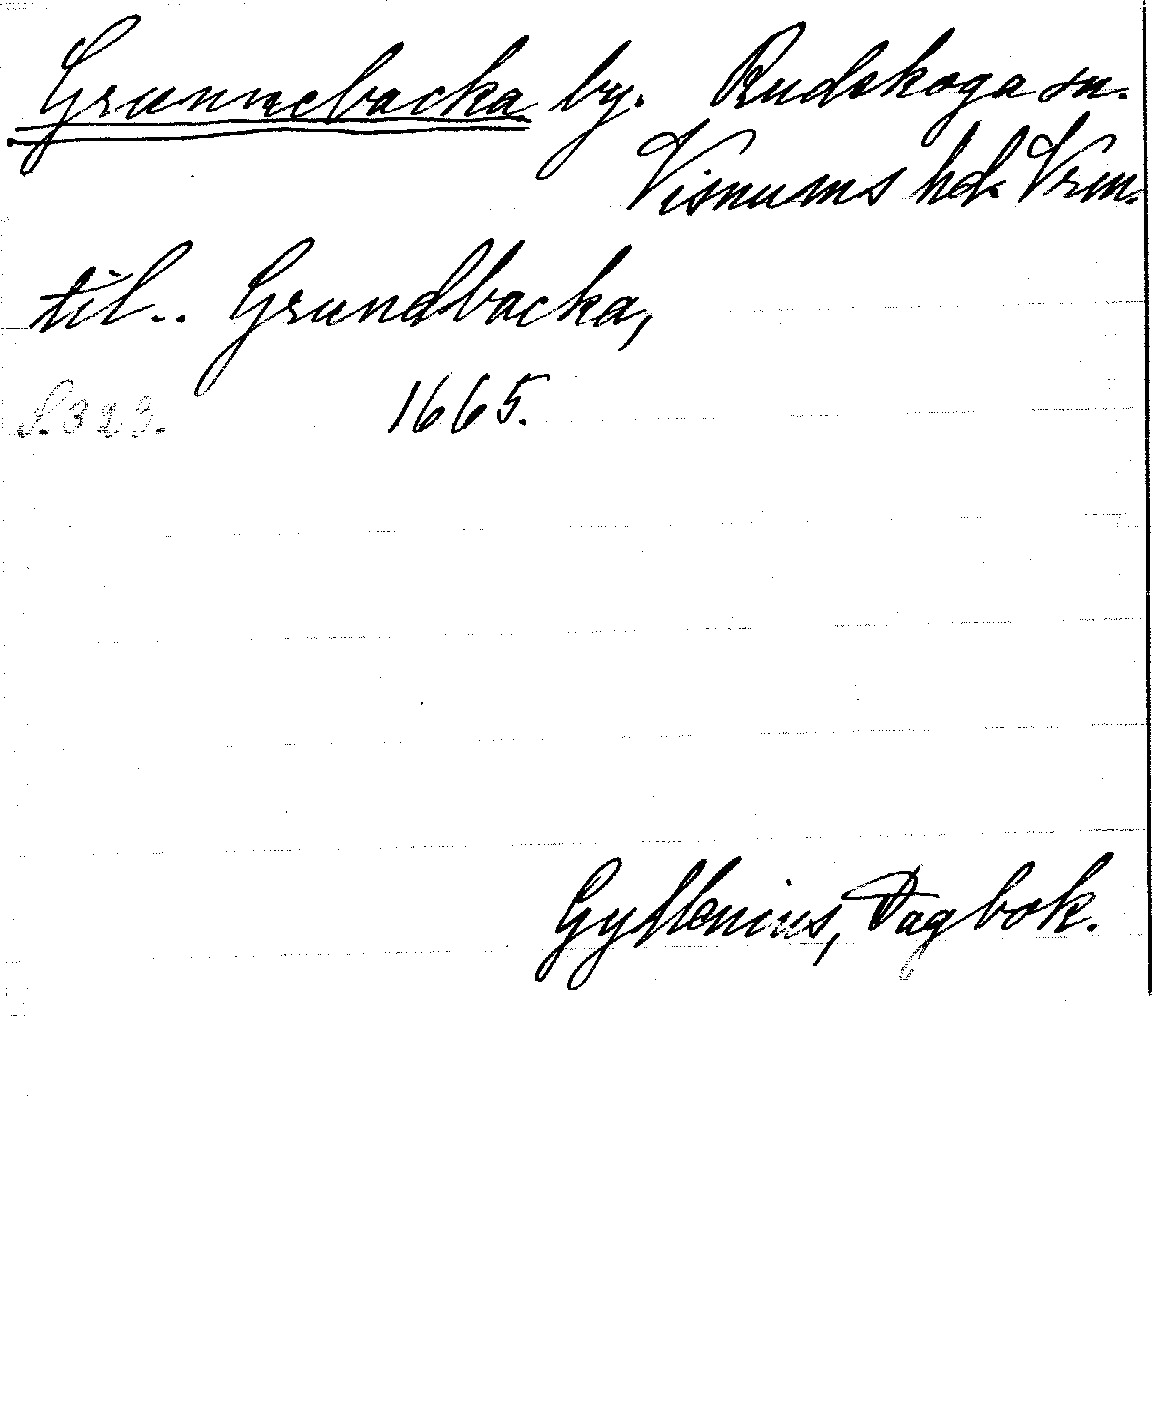 Grunnebacka by. Rudskoga sn.
Visnums hd. Vrm.
til.. Grundbacka,
S. 323. 1665.
Gyllenius, Dagbok.